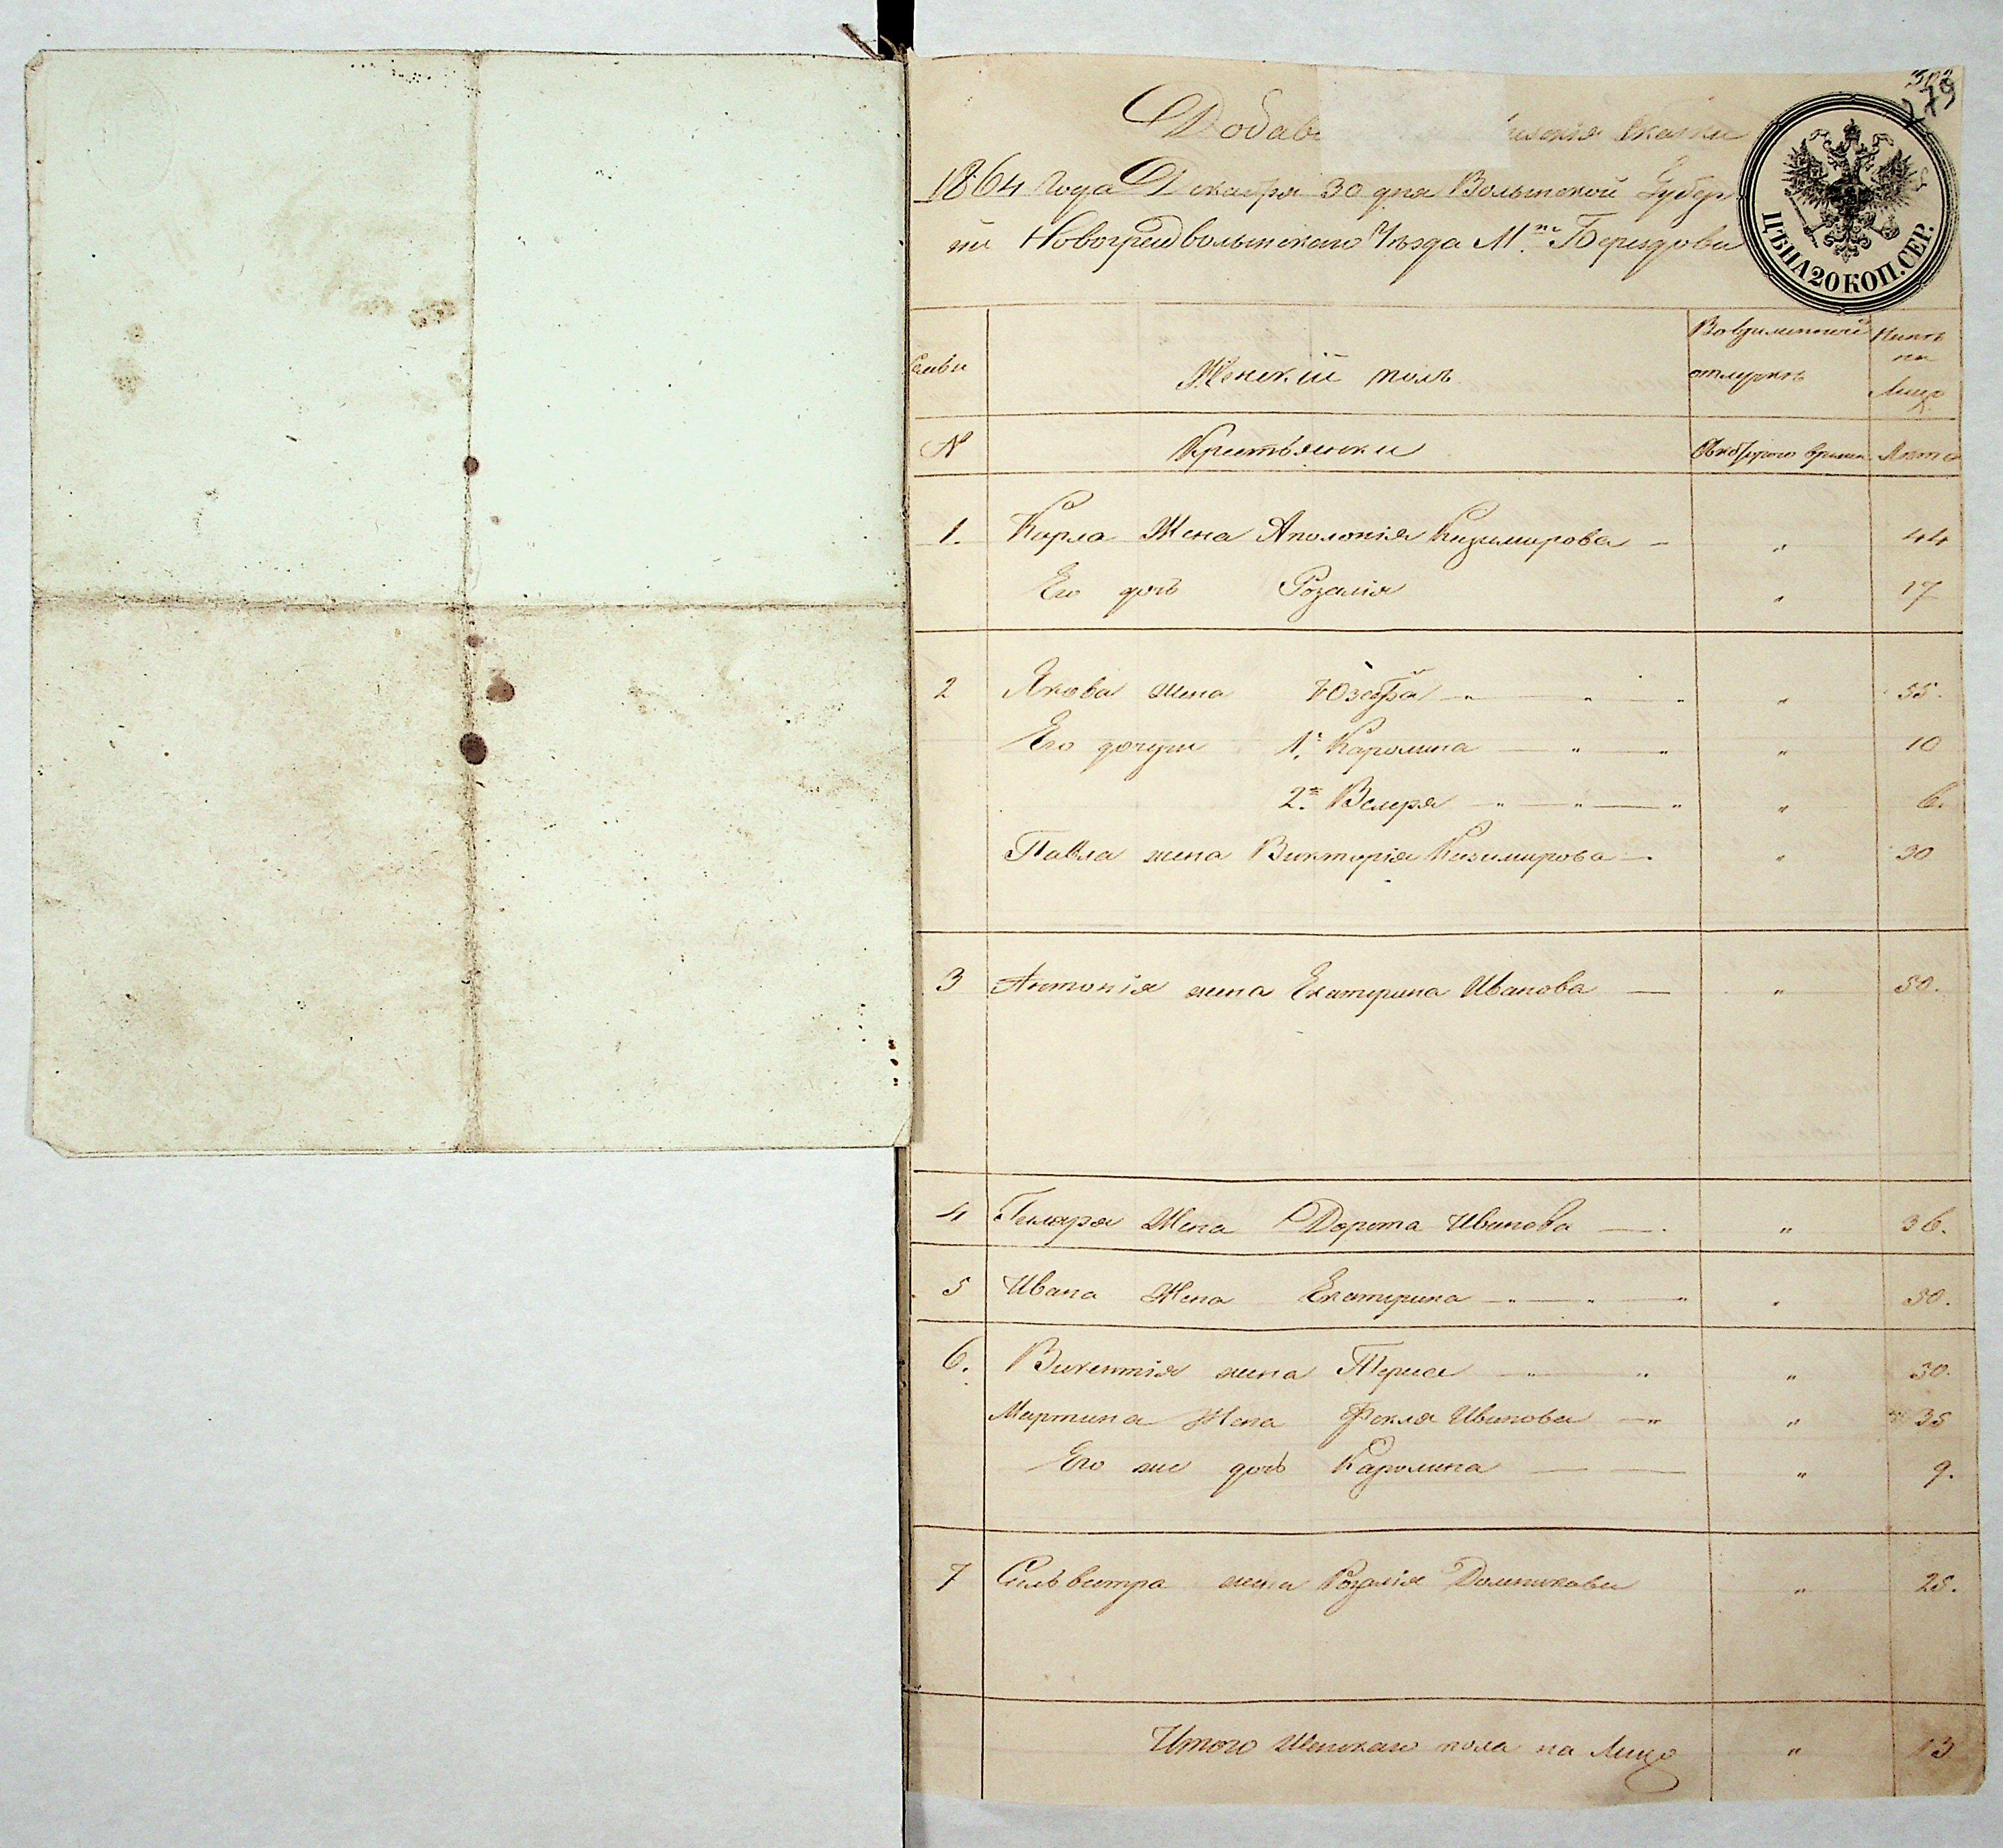 Добав ... визския Сказки
1864 года Декабря 30 дня Волынской Губер
нии Новоградволынскаго Уѣзда М.ко Берездова
ЦѢНА 20 КОП. СЕР.
Семьи Женскій полъ Вовременной отлучкѣ Нынѣ на Лицо
N Крестьянки Съкотораго времени Лѣта
1. Карла Жена Аполонія Казимирова — " 44
Его дочь Розалія " 17
2 Якова жена Юзефа — " 55.
Его дочери 1.я Каролина — " — " " 10
2.я Валеря — " — " — " " 6.
Павла жена Викторія Казимирова — " 30
3 Антонія жена Екатерина Иванова — " 50.
4 Жена Дорота Иванова — " 36.
5 Ивана Жена Екатерина — " — " — " " 50.
6. Викентія жена Тереса " " " 30.
Мартина Жена Фекла Иванова — " " 35
Его же дочь Каролина — — " 9.
7 Сильвестра жена Розалія Доминикова " 25.
Итого Женскаго пола на Лицо " 13